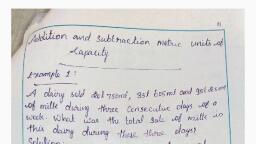 Addition and Subtraction metric units of
Capacity
Example 1:
A dairy sold 20l 750ml, 35l 505ml and 30l
of milk during three Consecutive days of a
week. What was the total Sale of milk in
this dairy during these three days?
Solution: